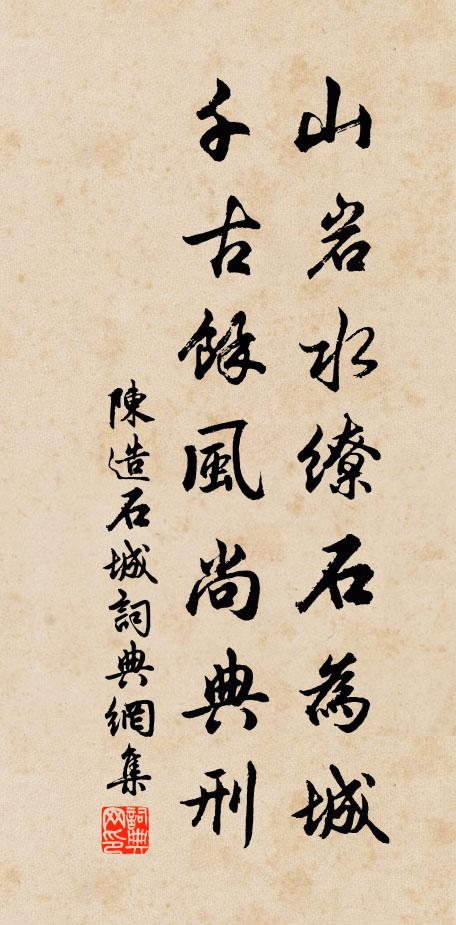 山岩水繚石為城
千古餘風尚典刑
陳造石城詞典網集
詞典
网印